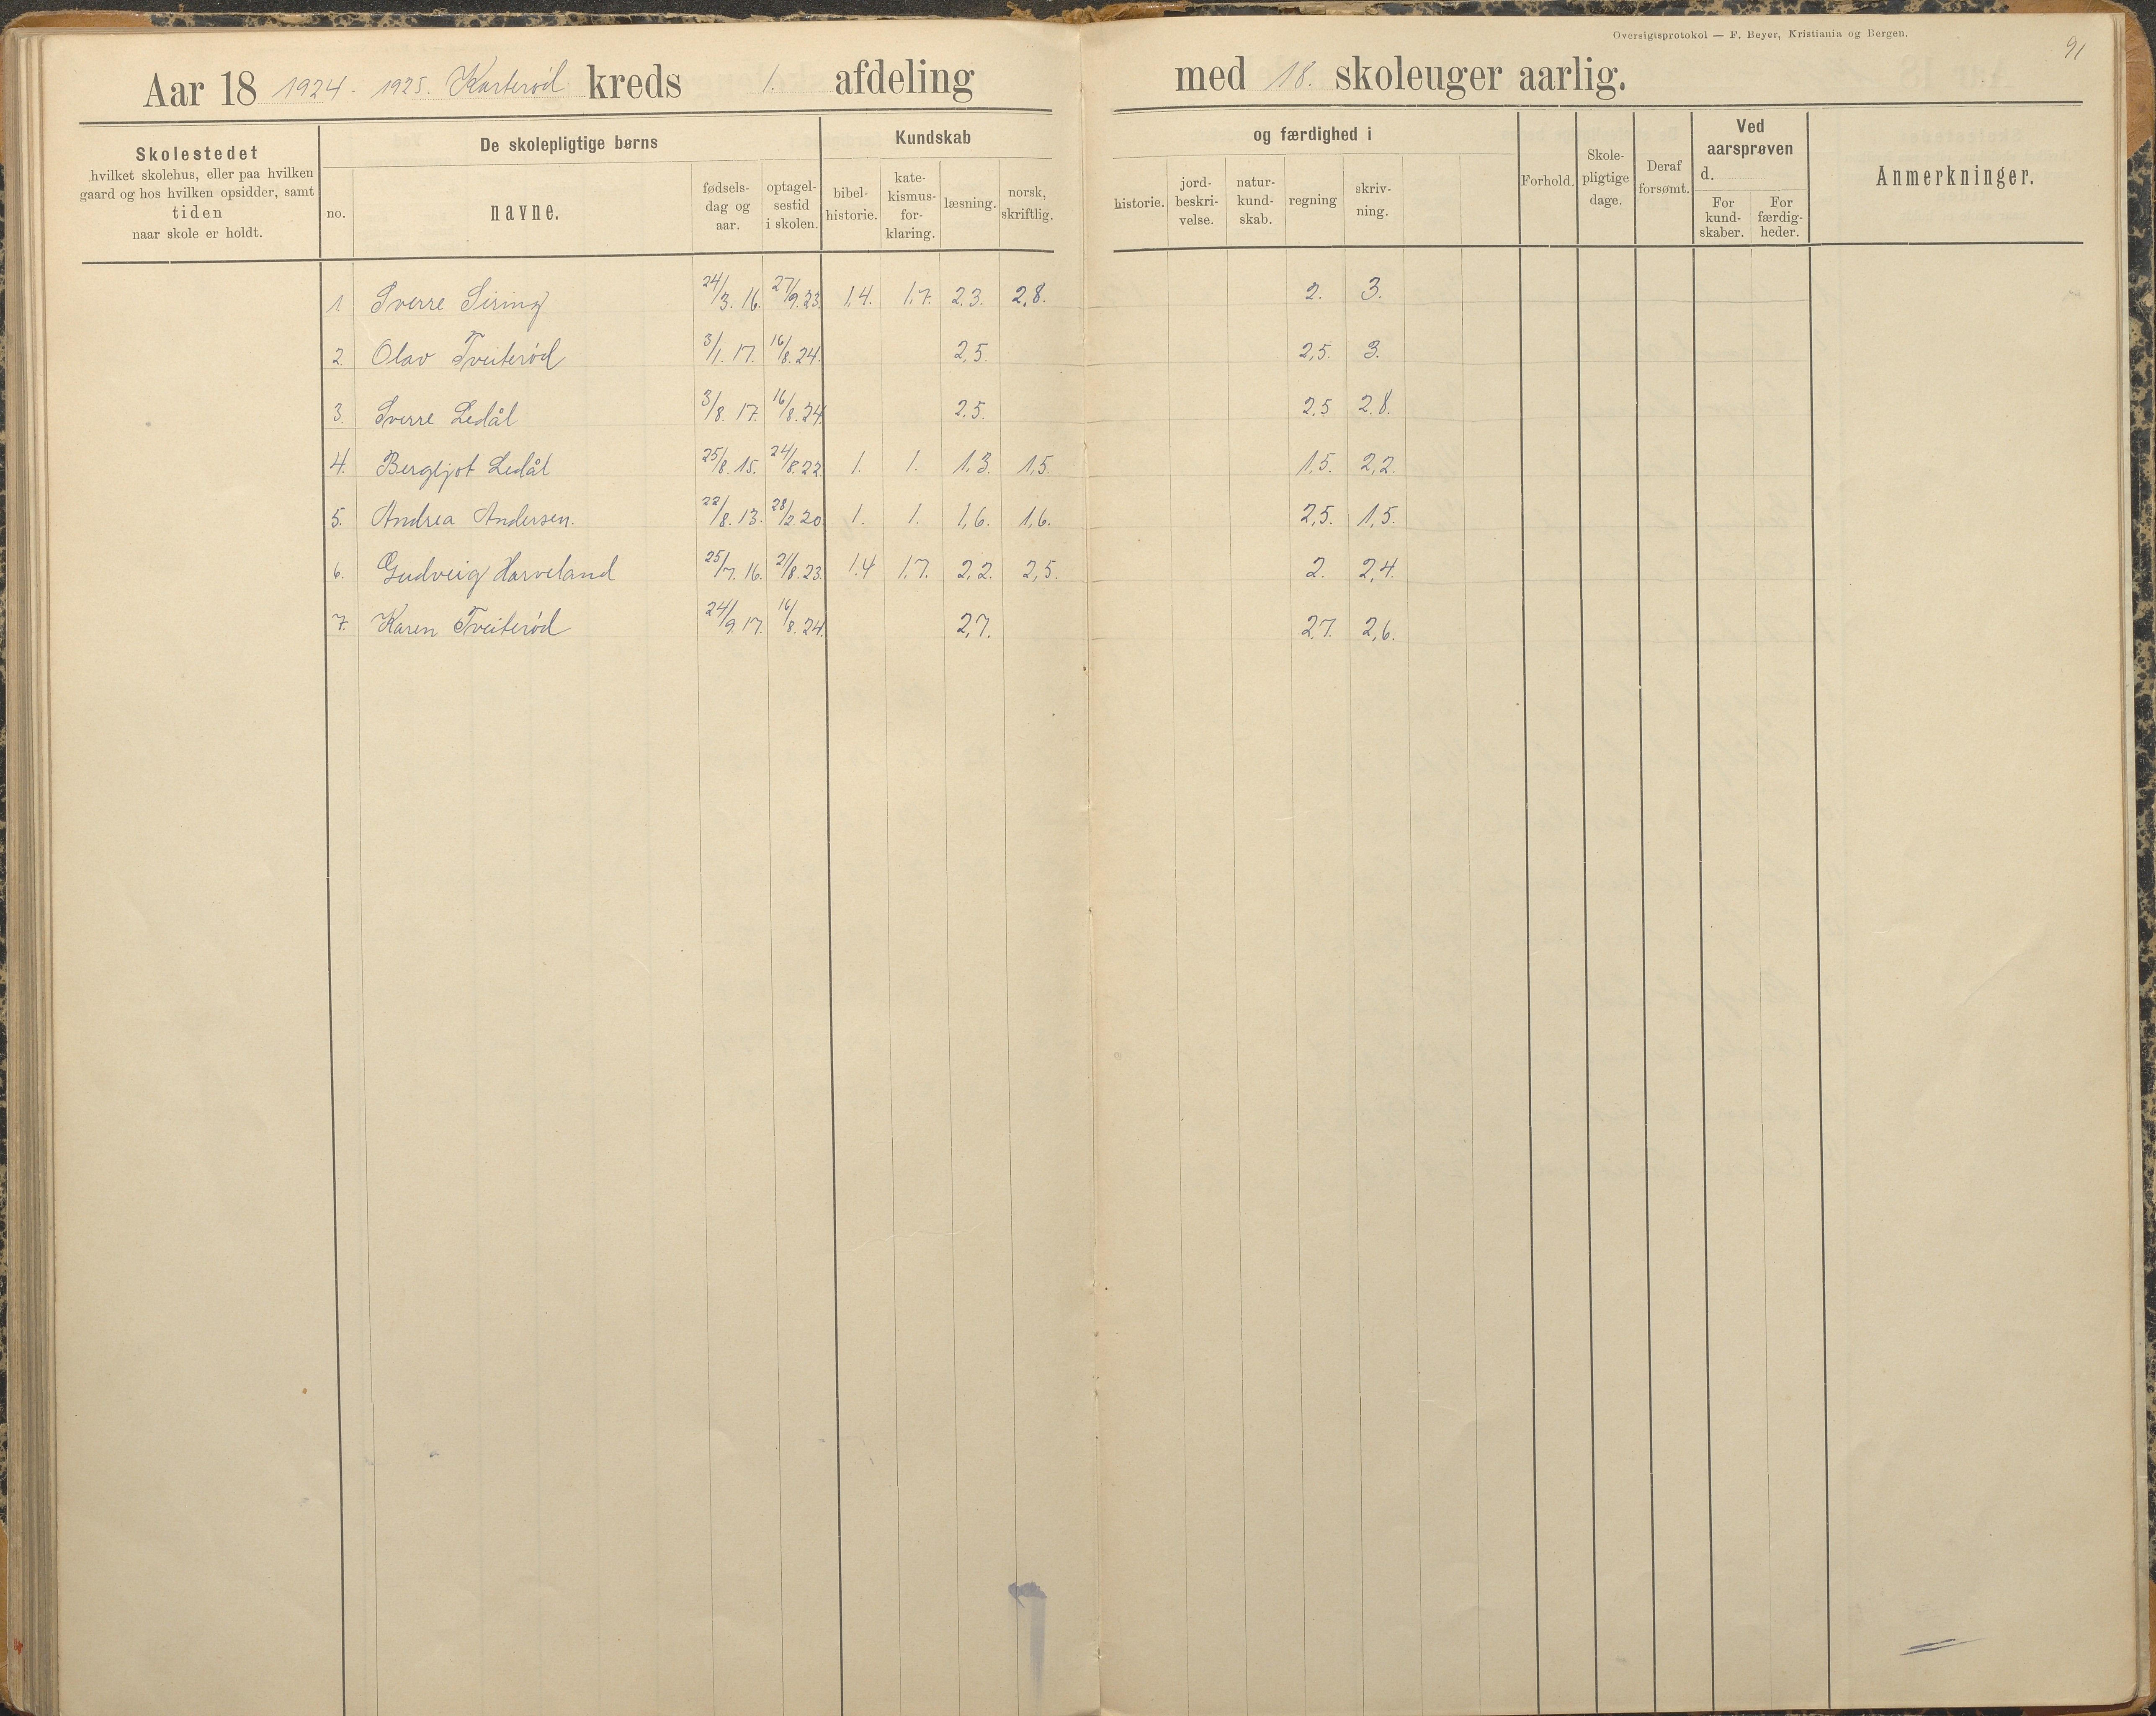 Oversigtsprotokol — F. Beyer, Kristiania og Bergen.
91
Aar 18 1924 - 1925. Karterød kreds 1. afdeling med 18. skoleuger aarlig.
Skolestedet
hvilket skolehus, eller paa hvilken
gaard og hos hvilken opsidder, samt
tiden
naar skole er holdt.
De skolepligtige børns
no.
navne.
fødsels-
dag og
aar.
optagel-
sestid
i skolen.
Kundskab
bibel-
historie.
kate-
kismus-
for-
klaring.
læsning.
norsk,
skriftlig.
og færdighed i
historie.
jord-
beskri-
velse.
natur-
kund-
skab.
regning
skriv-
ning.
Forhold.
Skole-
pligtige
dage.
Deraf
forsømt.
Ved
aarsprøven
d.
For
kund-
skaber.
For
færdig-
heder.
Anmerkninger.
1 Sverre Siring 24/3. 16. 27/9. 23. 1,4. 1,7. 2,3. 2,8. 2. 3.
2. Olav Tveiterød 3/1. 17. 16/8. 24. 2,5. 2,5. 3.
3. Sverre Ledål 3/8. 17. 16/8. 24. 2,5. 2,5 2,8.
4. Bergljot Ledål 25/8. 15. 24/8. 22 1. 1. 1,3. 1,5. 1,5. 2,2.
5. Andrea Andersen. 22/8. 13. 28/2. 20 1. 1. 1,6. 1,6. 2,5. 1,5.
6. Gudveig Harveland 25/7. 16. 21/8. 23. 1.4 1,7. 2,2. 2,5. 2. 2,4.
7. Karen Tveiterød 24/9. 17. 16/8. 24. 2,7. 2,7. 2,6.